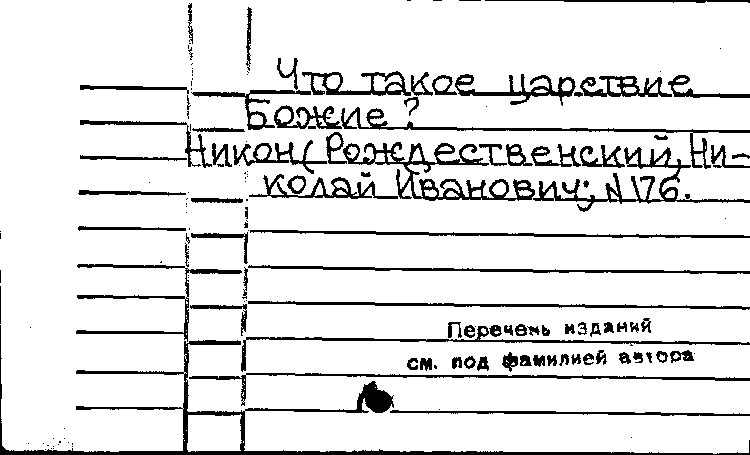 Что такое царствие
Божие?
Никон (Рождественский, Ни-
колай Иванович; N 176.
Перечень изданий
см. под фамилией автора